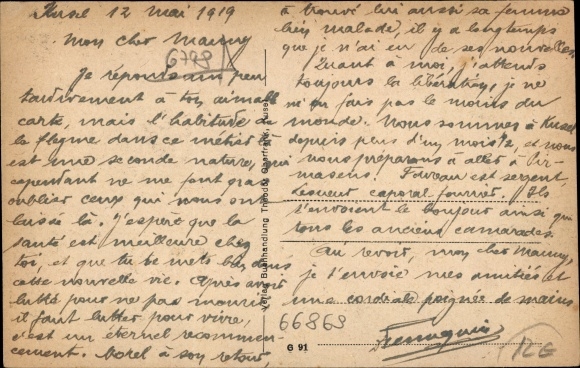 Kusel 12 mai 1919
Mon cher Mauny
6798
Je réponds un peu
tardivement à ton aimable
carte, mais l'habitude &
le flegme dans ce métier
est une seconde nature, qui
cependant ne me fait pas
oublier ceux qui nous ont
laissé là. J'espère que la
santé est meilleure chez
toi, et que tu te mets bien dans
cette nouvelle vie. Après avoir
lutté pour ne pas mourir
il faut lutter pour vivre,
c'est un éternel recommen-
cement. Morel à son retour,
Verlag Buchhandlung Theodor Kusel.
G 91
a trouvé lui aussi sa femme
très malade, il y a longtemps
que je n'ai eu de ses nouvelles
Quant à moi, j'attends
toujours la libération, je ne
m'en fais pas le moins du
monde. Nous sommes à Kusel
depuis plus d'un mois, et nous
nous préparons à aller à Pir-
masens. Faveau est sergent,
caporal fourrier. Ils
t'envoient le bonjour ainsi que
tous les anciens camarades.
Au revoir, mon cher Mauny,
je t'envoie mes amitiés et
une cordiale poignée de mains
66869
RG